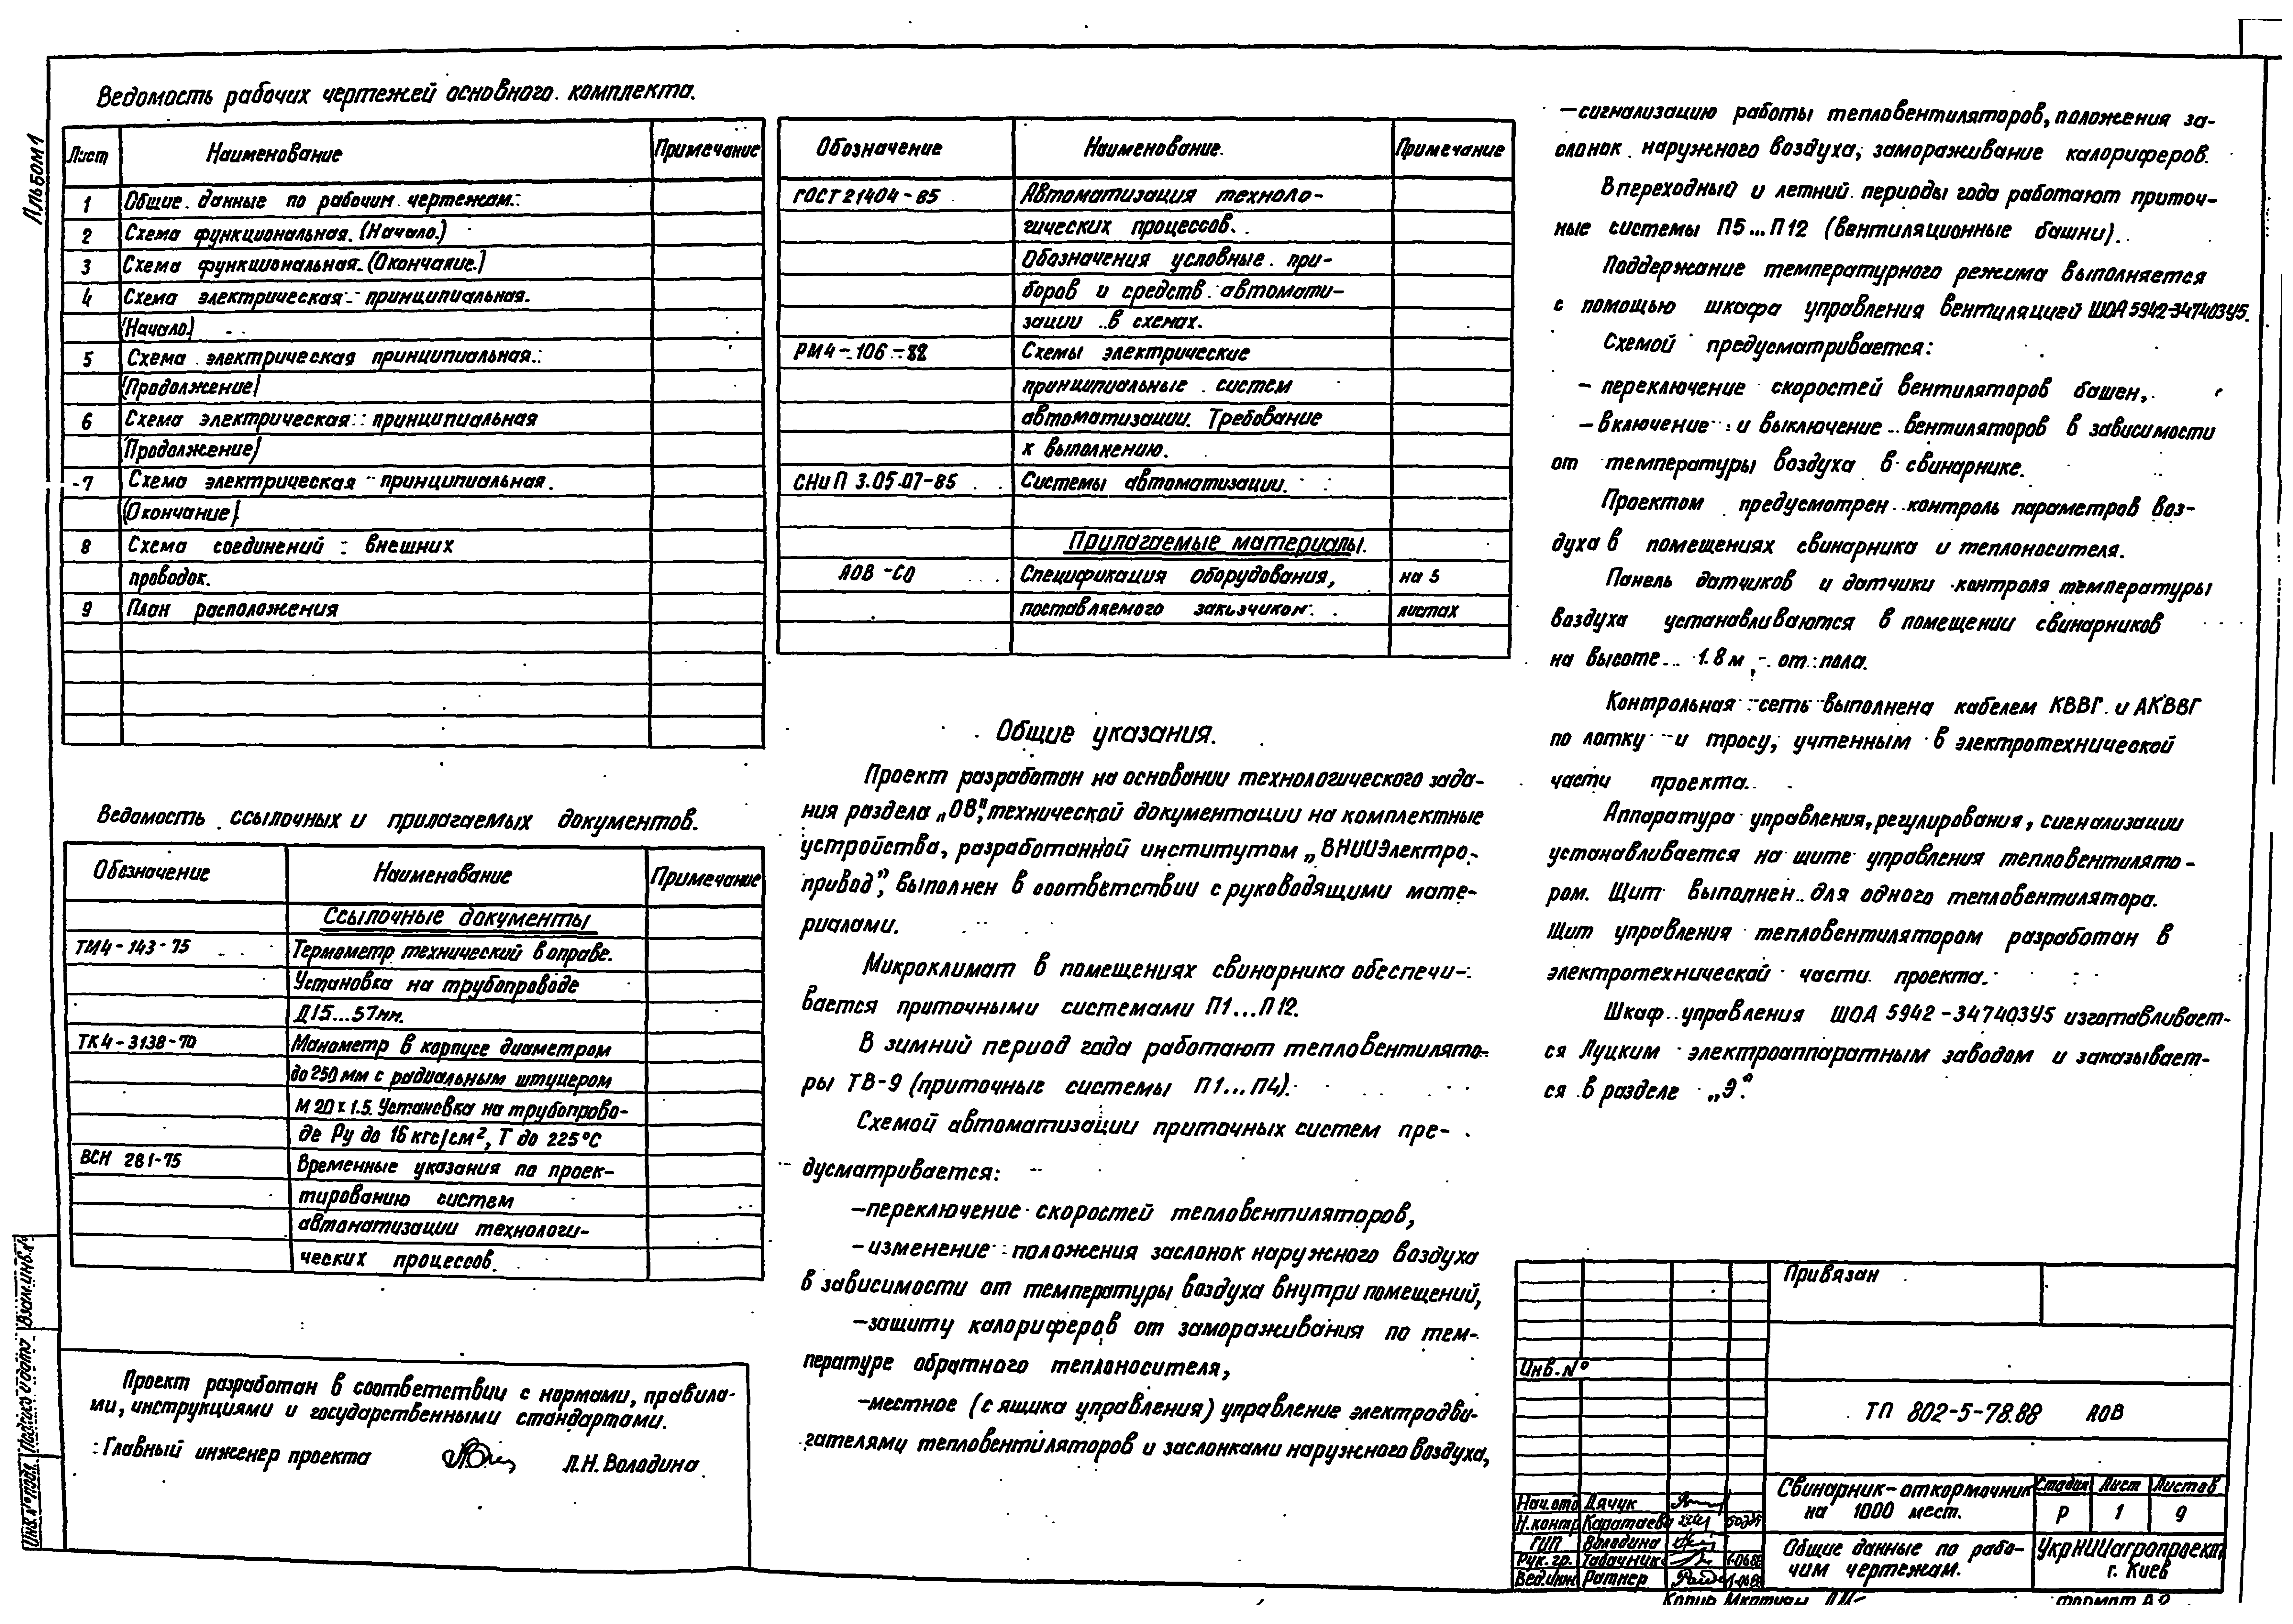 Альбом 1
Ведомость рабочих чертежей основного комплекта.
Лист Наименование Примечание
1 Общие данные по рабочим чертежам.
2 Схема функциональная. (Начало.)
3 Схема функциональная. (Окончание.)
4 Схема электрическая принципиальная.
(Начало)
5 Схема электрическая принципиальная.
(Продолжение)
6 Схема электрическая принципиальная
(Продолжение)
7 Схема электрическая принципиальная.
(Окончание)
8 Схема соединений внешних
проводок.
9 План расположения
Ведомость ссылочных и прилагаемых документов.
Обозначение Наименование Примечание
Ссылочные документы
ТМ4-143-75 Термометр технический в оправе.
Установка на трубопроводе
Д15...57мм.
ТК4-3138-70 Манометр в корпусе диаметром
до 250 мм с радиальным штуцером
М 20 х 1.5. Установка на трубопрово-
де Ру до 16 кгс/см², Т до 225°С
ВСН 281-75 Временные указания по проек-
тированию систем
автоматизации технологи-
ческих процессов.
Проект разработан в соответствии с нормами, правила-
ми, инструкциями и государственными стандартами.
Главный инженер проекта Л.Н. Володина
Взам.инв.№
Подпись и дата
Инв.№ подл.
Обозначение Наименование. Примечание
ГОСТ 21404-85 Автоматизация техноло-
гических процессов.
Обозначения условные при-
боров и средств автомати-
зации в схемах.
РМ4-106-82 Схемы электрические
принципиальные систем
автоматизации. Требование
к выполнению.
СНиП 3.05.07-85 Системы автоматизации.
Прилагаемые материалы.
АОВ-СО Спецификация оборудования, на 5
поставляемого заказчиком листах
Общие указания.
Проект разработан на основании технологического зада-
ния раздела „ОВ", технической документации на комплектные
устройства, разработанной институтом „ВНИИЭлектро-
привод", выполнен в соответствии с руководящими мате-
риалами.
Микроклимат в помещениях свинарника обеспечи-
вается приточными системами П1...П12.
В зимний период года работают тепловентилято-
ры ТВ-9 (приточные системы П1...П4).
Схемой автоматизации приточных систем пре-
дусматривается:
-переключение скоростей тепловентиляторов,
-изменение положения заслонок наружного воздуха
в зависимости от температуры воздуха внутри помещений,
-защиту калориферов от замораживания по тем-
пературе обратного теплоносителя,
-местное (с ящика управления) управление электродви-
гателями тепловентиляторов и заслонками наружного воздуха,
-сигнализацию работы тепловентиляторов, положения за-
слонок наружного воздуха, замораживание калориферов.
В переходный и летний периоды года работают приточ-
ные системы П5...П12 (вентиляционные башни).
Поддержание температурного режима выполняется
с помощью шкафа управления вентиляцией ШОА 5942-347403У5.
Схемой предусматривается:
- переключение скоростей вентиляторов башен,
-включение и выключение вентиляторов в зависимости
от температуры воздуха в свинарнике.
Проектом предусмотрен контроль параметров воз-
духа в помещениях свинарника и теплоносителя.
Панель датчиков и датчики контроля температуры
воздуха устанавливаются в помещении свинарников
на высоте 1.8 м от пола.
Контрольная сеть выполнена кабелем КВВГ и АКВВГ
по лотку и тросу, учтенным в электротехнической
части проекта.
Аппаратура управления, регулирования, сигнализации
устанавливается на щите управления тепловентилято-
ром. Щит выполнен для одного тепловентилятора.
Щит управления тепловентилятором разработан в
электротехнической части проекта.
Шкаф управления ШОА 5942-347403У5 изготавливает-
ся Луцким электроаппаратным заводом и заказывает-
ся в разделе „Э".
Привязан
Инв.№
ТП 802-5-78.88 АОВ
Нач.отд Дячук
Н.контр Каратаева
ГИП Володина
Рук.гр. Табачник
Вед.инж Ратнер
Свинарник-откормочник
на 1000 мест.
Стадия Лист Листов
Р 1 9
Общие данные по рабо-
чим чертежам.
УкрНИИагропроект
г. Киев
Формат А2